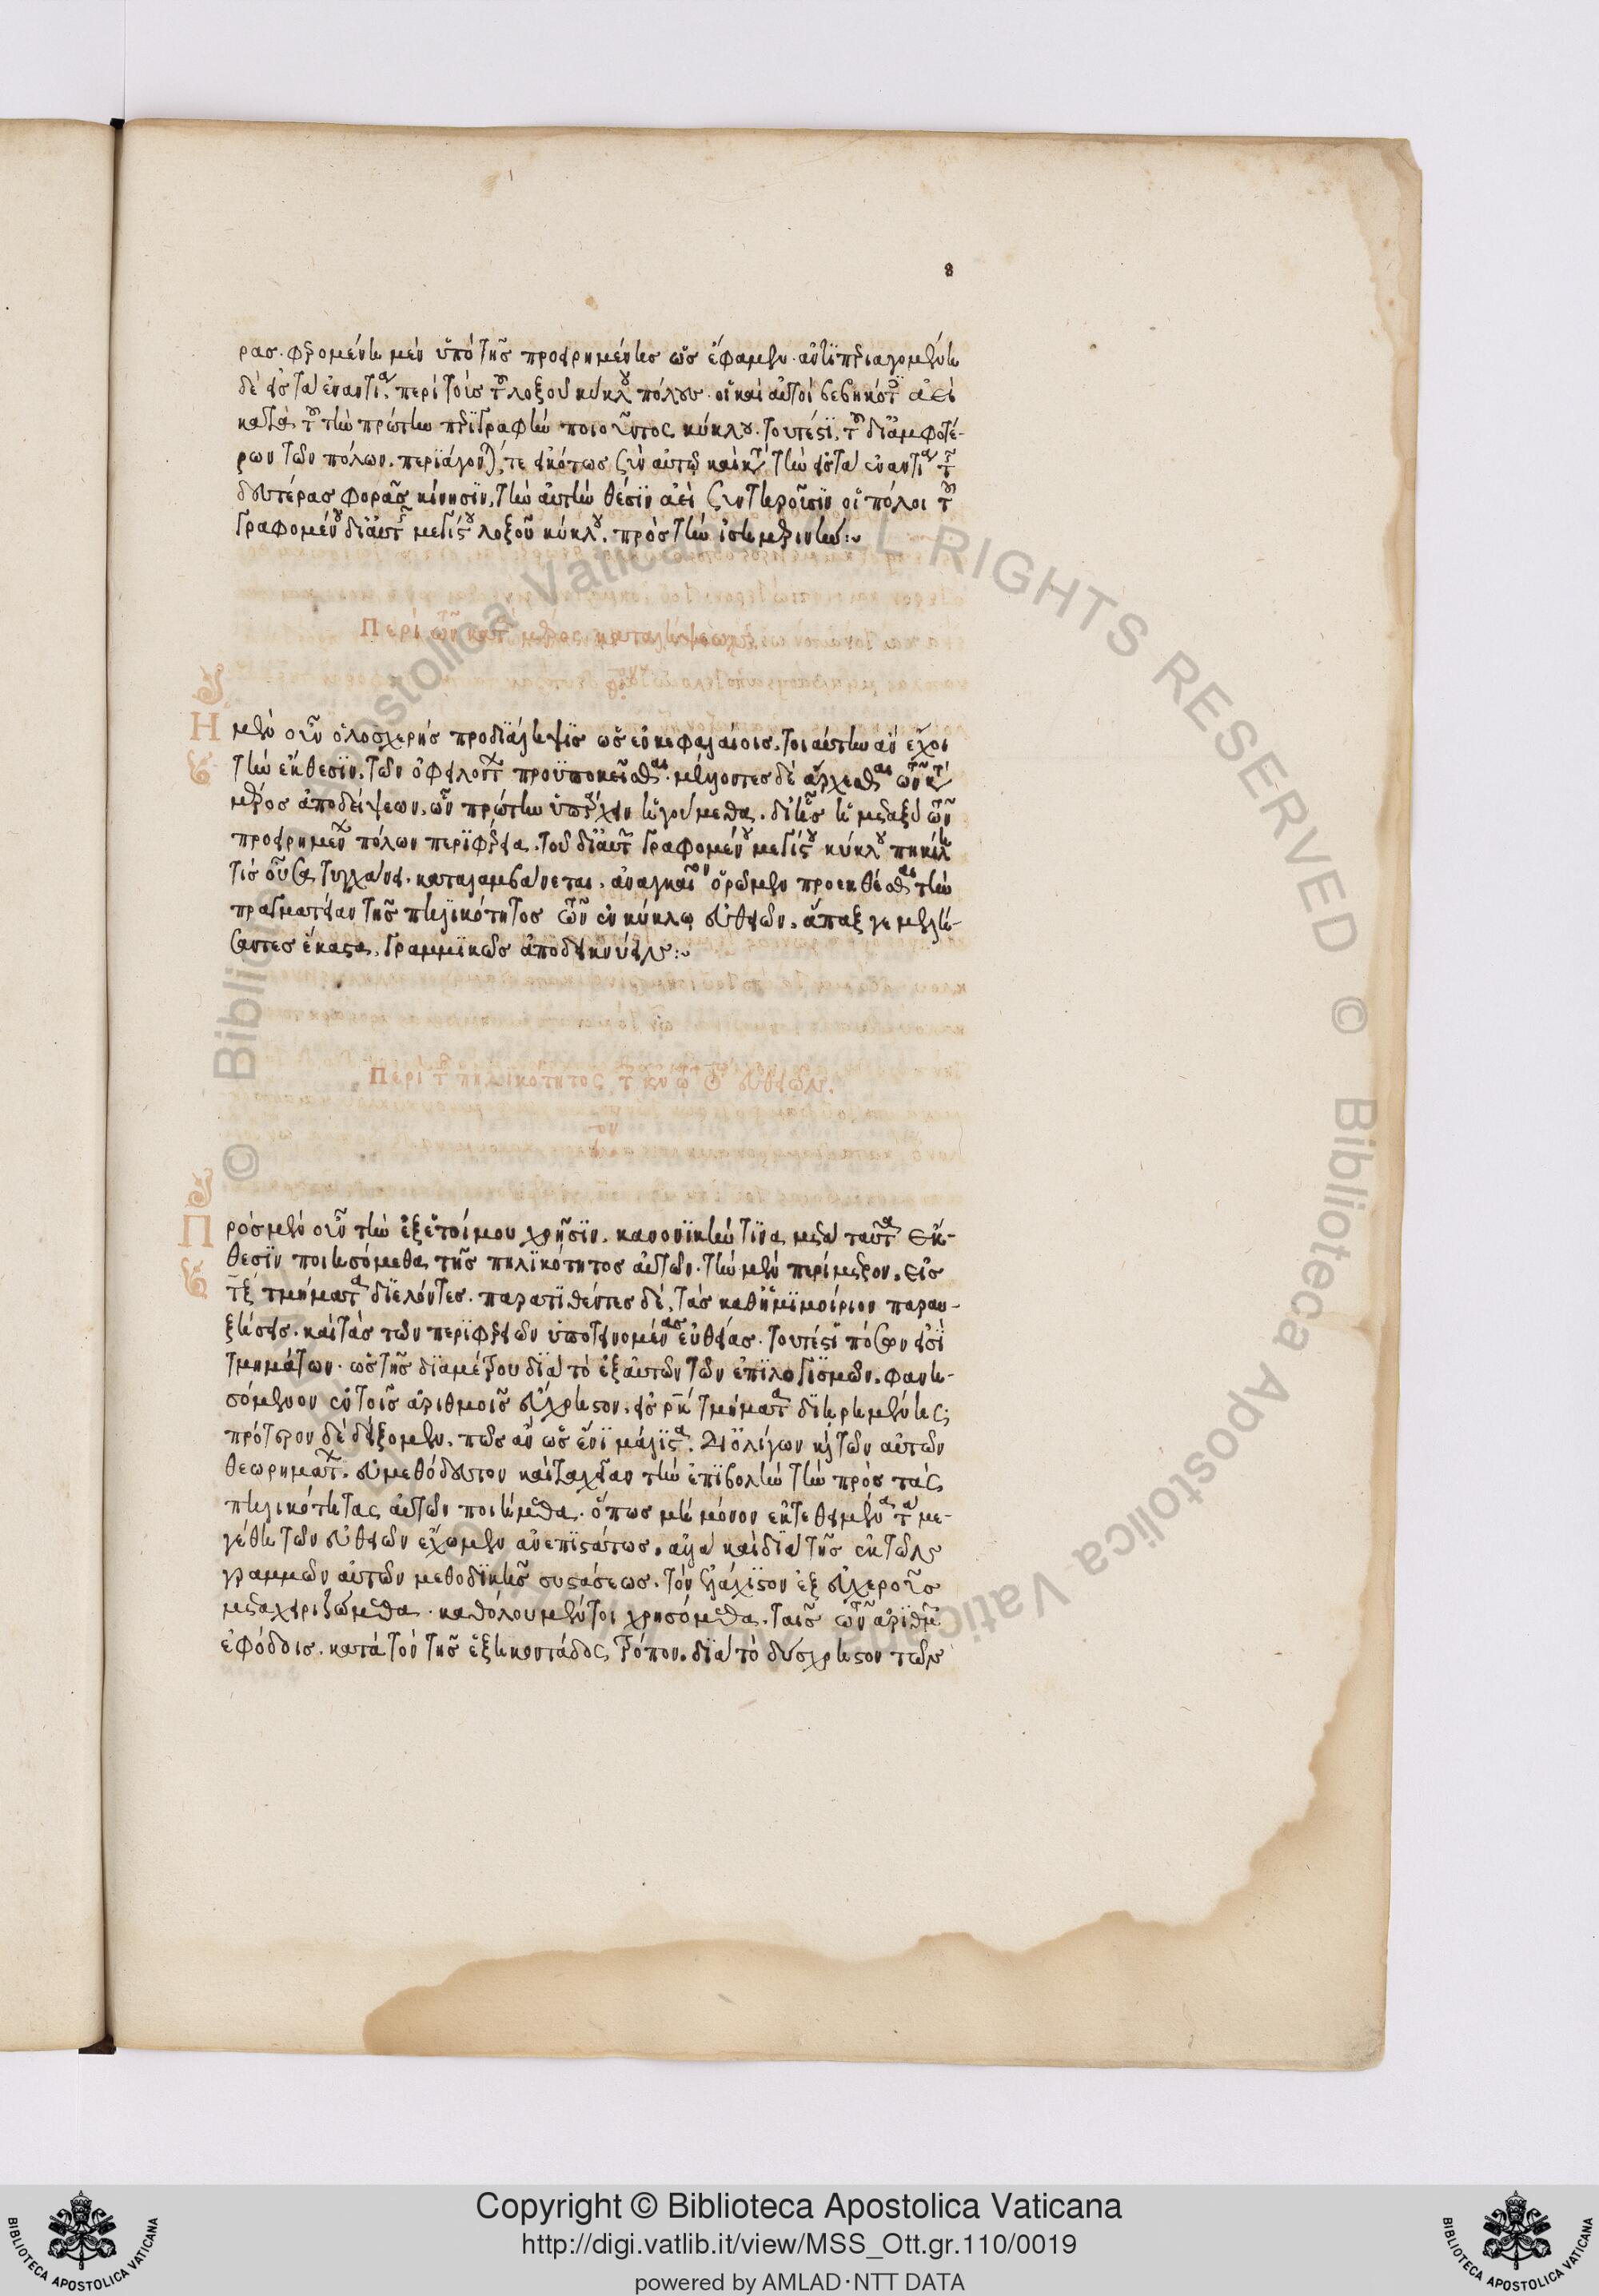 8
ρας. φερομένη μὲν ὑπὸ τῆς προειρημένης ὡς ἔφαμεν. ἀντιπεριαγομένη
δὲ εἰς τὰ ἐναντία, περὶ τοὺς τοῦ λοξοῦ κύκλου πόλους. οἳ καὶ αὐτοὶ βεβηκότες ἀεὶ
κατὰ τοῦ τὴν πρώτην περιγραφὴν ποιοῦντος κύκλου. τουτέστι, τοῦ δι' ἀμφοτέ-
ρων τῶν πόλων. περιάγονταί, τε εἰκότως σὺν αὐτῷ καὶ κατὰ τὴν εἰς τὰ ἐναντία τῆς
δευτέρας φορᾶς κίνησιν, τὴν αὐτὴν θέσιν ἀεὶ συντηροῦσιν οἱ πόλοι τοῦ
γραφομένου δι' αὐτῆς μεγίστου λοξοῦ κύκλου. πρὸς τὴν ἰσημερινήν:~
Περὶ τῶν κατὰ μέρος καταλήψεων
Η μὲν οὖν ὁλοσχερὴς προδιάληψις ὡς ἐν κεφαλαίοις, τοιαύτην ἂν ἔχοι
τὴν ἔκθεσιν, τῶν ὀφειλόντων προϋποκεῖσθαι. μέλλοντες δὲ ἄρχεσθαι τῶν κατὰ
μέρος ἀποδείξεων, ὧν πρώτην ὑπάρχειν ἡγούμεθα. δι' ἧς ἡ μεταξὺ τῶν
προειρημένων πόλων περιφέρεια. τοῦ δι' αὐτῶν γραφομένου μεγίστου κύκλου πηλίκη
τις οὖσα τυγχάνει. καταλαμβάνεται, ἀναγκαῖον ὁρῶμεν προεκθέσθαι τὴν
πραγματείαν τῆς πηλικότητος τῶν ἐν κύκλῳ εὐθειῶν. ἅπαξ γε μελλή-
σαντες ἕκαστα, γραμμικῶς ἀποδεικνύειν:~
Περὶ τῆς πηλικότητος τῶν ἐν τῷ κύκλῳ εὐθειῶν.
Π ρὸς μὲν οὖν τὴν ἐξ ἑτοίμου χρῆσιν. κανονικήν τινα μετὰ ταῦτα ἔκ-
θεσιν ποιησόμεθα τῆς πηλικότητος αὐτῶν. τὴν μὲν περίμετρον, εἰς
τξ τμήματα διελόντες. παρατιθέντες δὲ, τὰς καθ' ἡμιμοίριον παραυ-
ξήσεις. καὶ τὰς τῶν περιφερειῶν ὑποτεινομένας εὐθείας. τουτέστι πόσων εἰσὶ
τμημάτων. ὡς τῆς διαμέτρου διὰ τὸ ἐξ αὐτῶν τῶν ἐπιλογισμῶν. φανη-
σόμενον ἐν τοῖς ἀριθμοῖς εὔχρηστον. εἰς ρκ τμήματα διῃρημένης;
πρότερον δὲ δείξομεν. πῶς ἂν ὡς ἔνι μάλιστα, δι' ὀλίγων καὶ τῶν αὐτῶν
θεωρημάτων. εὐμεθόδευτον καὶ ταχεῖαν τὴν ἐπιβολὴν τὴν πρὸς τὰς
πηλικότητας αὐτῶν ποιήμεθα. ὅπως μὴ μόνον ἐκτεθειμένα τὰ με-
γέθη τῶν εὐθειῶν ἔχωμεν ἀνεπιστάτως. ἀλλὰ καὶ διὰ τῆς ἐκ τῶν
γραμμῶν αὐτῶν μεθοδικῆς συστάσεως. τὸν ἔλεγχον ἐξ εὐχεροῦς
μεταχειριζώμεθα. καθόλου μέντοι χρησόμεθα. ταῖς τῶν ἀριθμῶν
ἐφόδοις. κατὰ τὸν τῆς ἑξηκοντάδος τρόπον. διὰ τὸ δύσχρηστον τῶν
© Biblioteca Apostolica Vaticana ALL RIGHTS RESERVED © Biblioteca Apostolica Vaticana
Copyright © Biblioteca Apostolica Vaticana
http://digi.vatlib.it/view/MSS_Ott.gr.110/0019
powered by AMLAD·NTT DATA
BIBLIOTECA APOSTOLICA VATICANA
BIBLIOTECA APOSTOLICA VATICANA